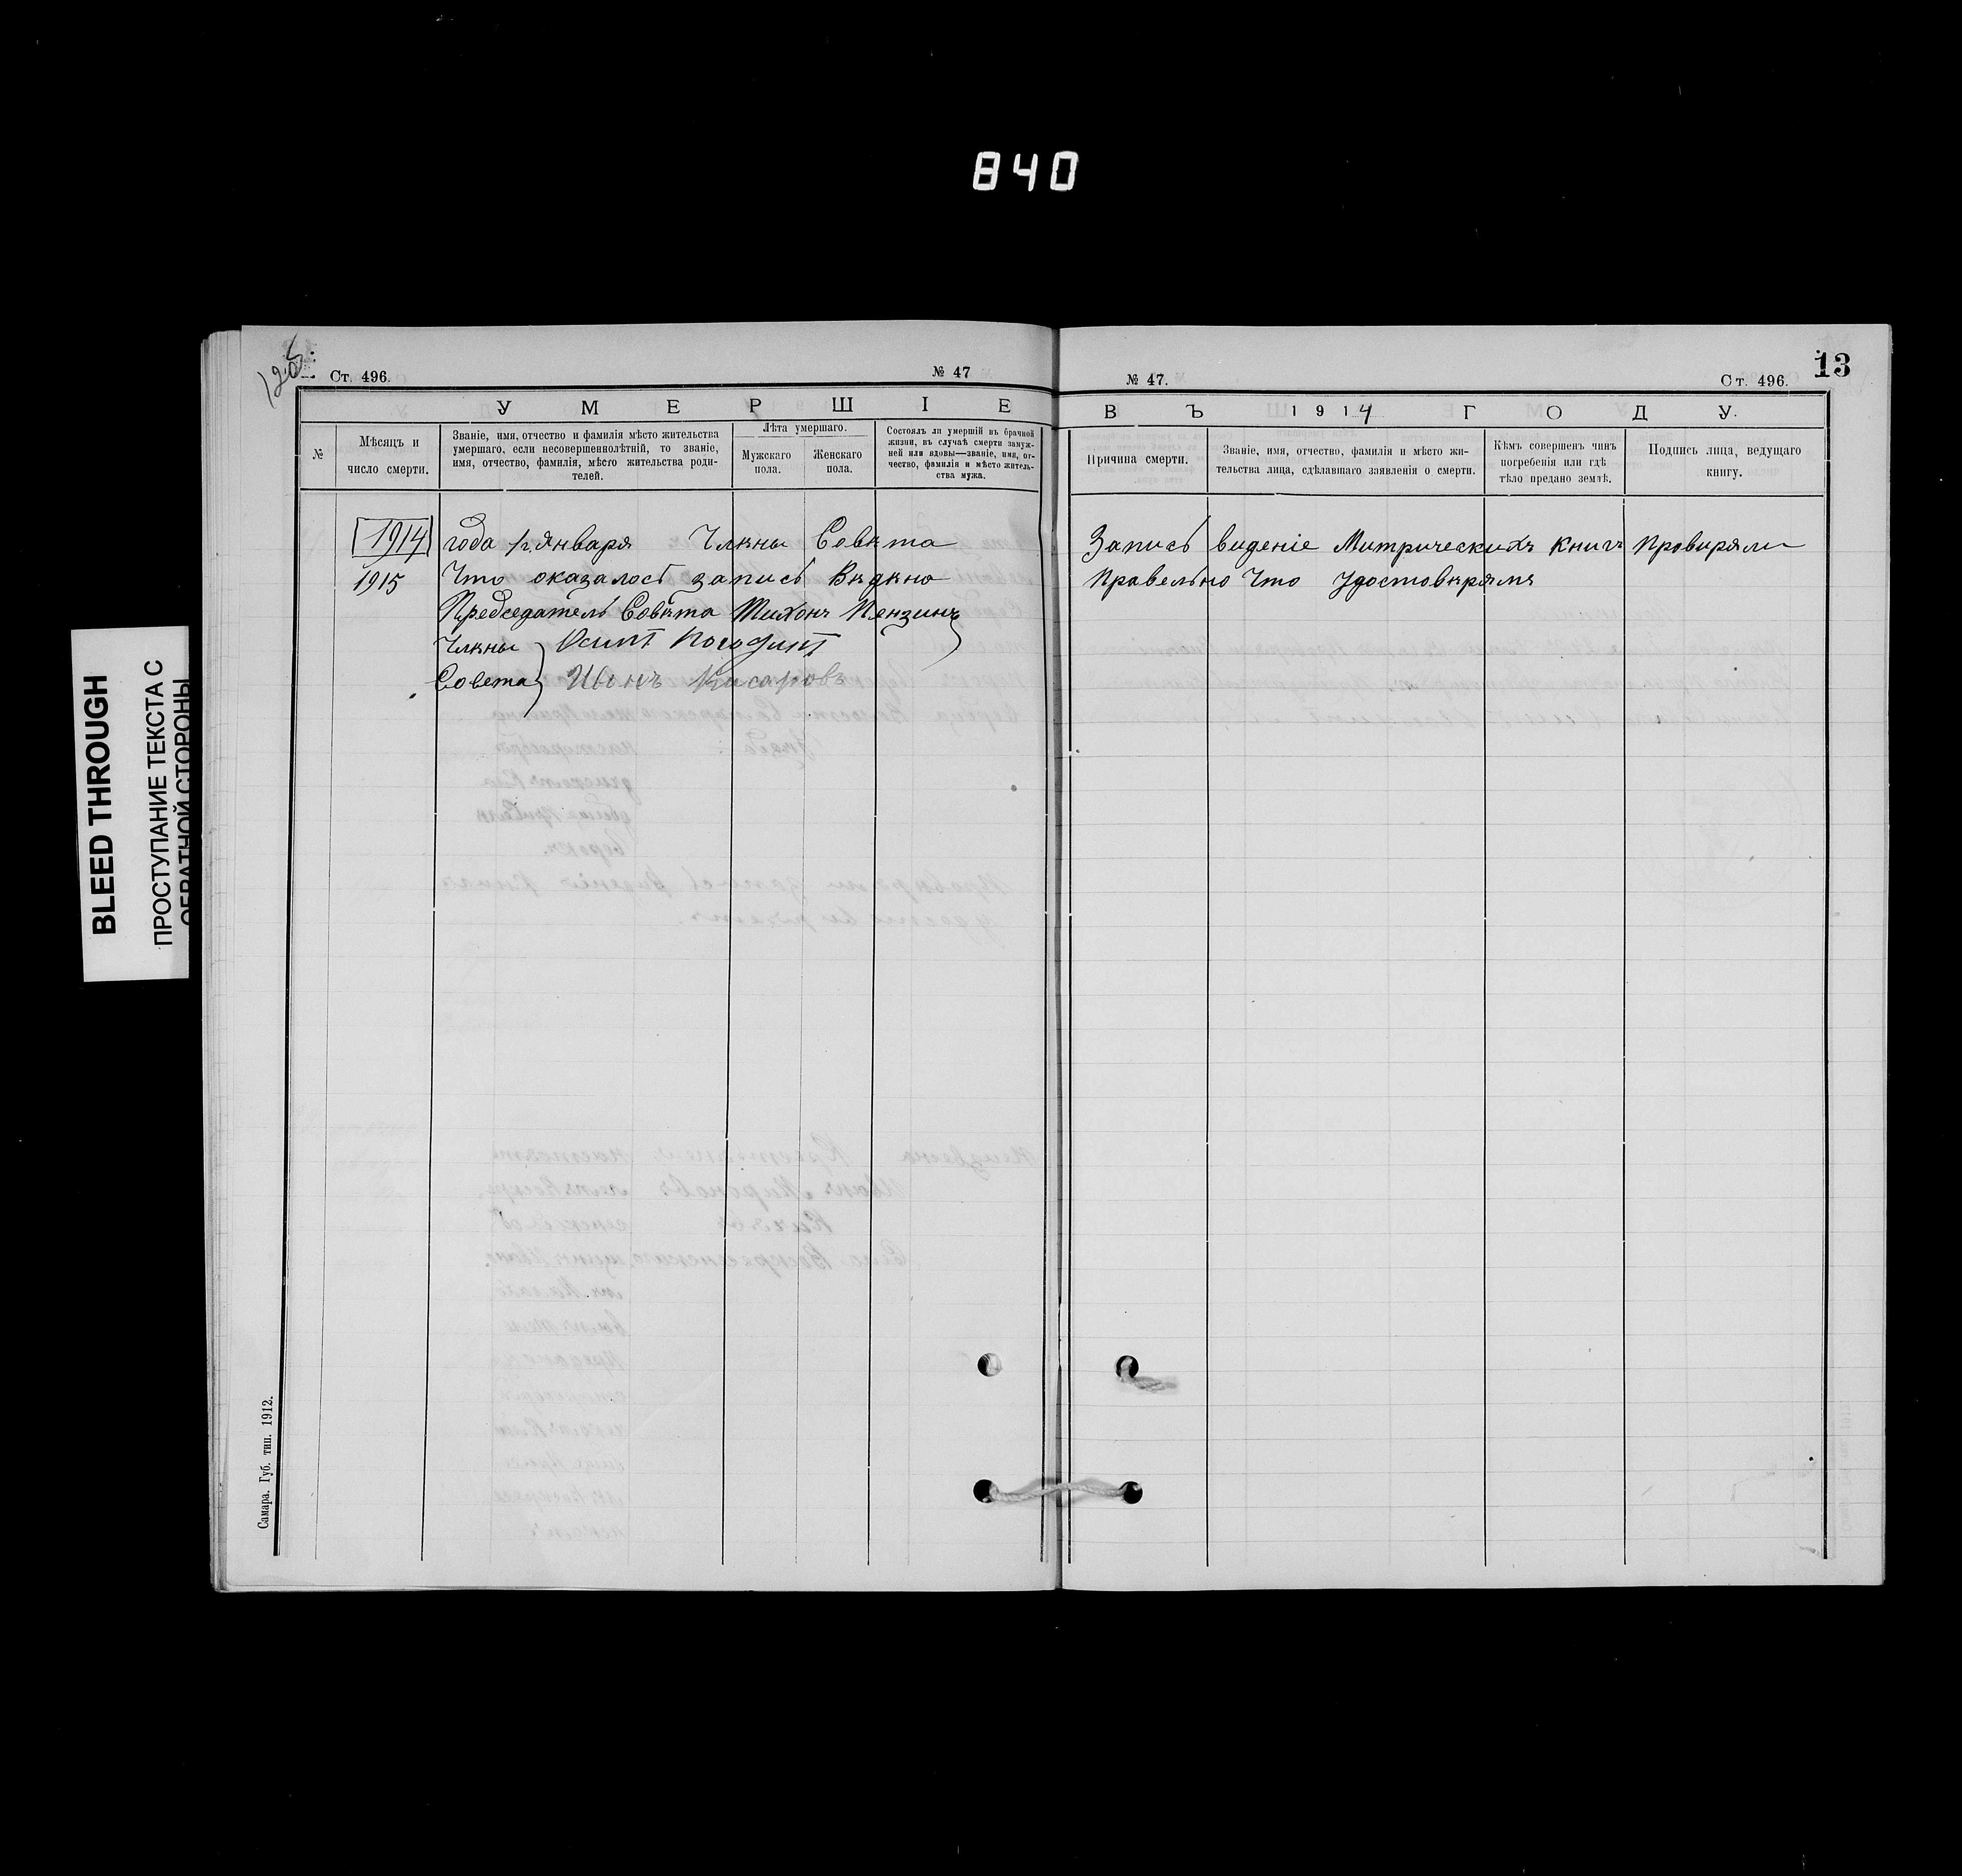 840
BLEED THROUGH
ПРОСТУПАНИЕ ТЕКСТА С
ОБРАТНОЙ СТОРОНЫ
Ст. 496.
№ 47
У М Е Р Ш І Е
№
Мѣсяцъ и
число смерти.
Званіе, имя, отчество и фамилія мѣсто жительства
умершаго, если несовершеннолѣтній, то званіе,
имя, отчество, фамилія, мѣсто жительства роди-
телей.
Лѣта умершаго.
Мужскаго
пола.
Женскаго
пола.
Состоялъ ли умершій въ брачной
жизни, въ случаѣ смерти замуж-
ней или вдовы—званіе, имя, от-
чество, фамилія и мѣсто житель-
ства мужа.
1914 года 1 января Члѣны Совѣта
1915 Что оказалось запись Вѣдѣно
Председатель Совѣта Тихонъ Пензинъ
Члѣны Осипъ Погодинъ
Совета Иванъ Кисаровъ
Самара. Губ. тип. 1912.
№ 47.
Ст. 496.
13
В Ъ 1914 Г О Д У.
Причина смерти.
Званіе, имя, отчество, фамилія и мѣсто жи-
тельства лица, сдѣлавшаго заявленія о смерти.
Кѣмъ совершенъ чинъ
погребенія или гдѣ
тѣло предано землѣ.
Подпись лица, ведущаго
книгу.
Запись виденіе Митрическихъ книгъ Провиряли
Правельно Что Удостовѣряемъ